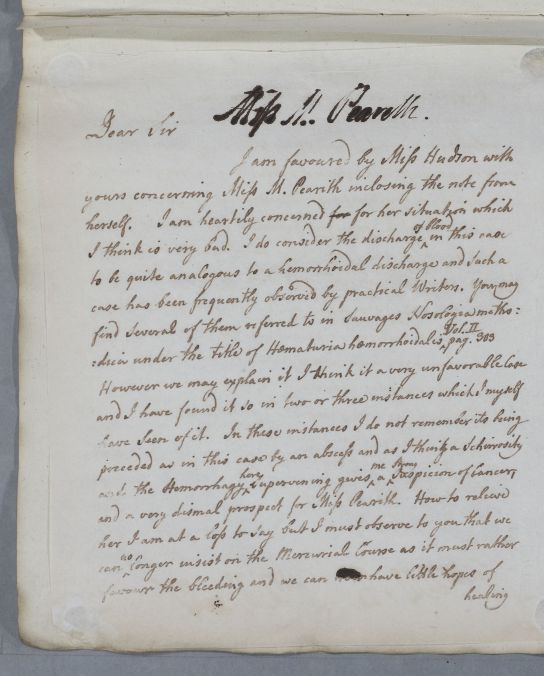 Miss M. Pearith.
Dear Sir
I am favoured by Miss Hudson with
yours concerning Miss M. Pearith inclosing the note from
herself. I am heartily concerned for for her situation which
I think is very bad. I do consider the discharge of blood in this case
to be quite analogous to a hemorrhoidal discharge and such a
case has been frequently observed by practical Writers. You may
find several of them referred to in Sauvages Nosologia metho:
:dica under the title of Hæmaturia hæmorrhoidalis, Vol. II pag. 303
However we may explain it I think it a very unfavorable Case
and I have found it so in two or three instances which I myself
have seen of it. In these instances I do not remember its being
preceded as in this case by an abscess and as I think a Schirrosity
and the Hemorrhagy here supervening gives me a strong suspicion of Cancer
and a very dismal prospect for Miss Pearith. How to relieve
her I am at a loss to say but I must observe to you that we
can no longer insist on the Mercurial Course as it must rather
favour the bleeding and we can have little hopes of
healing